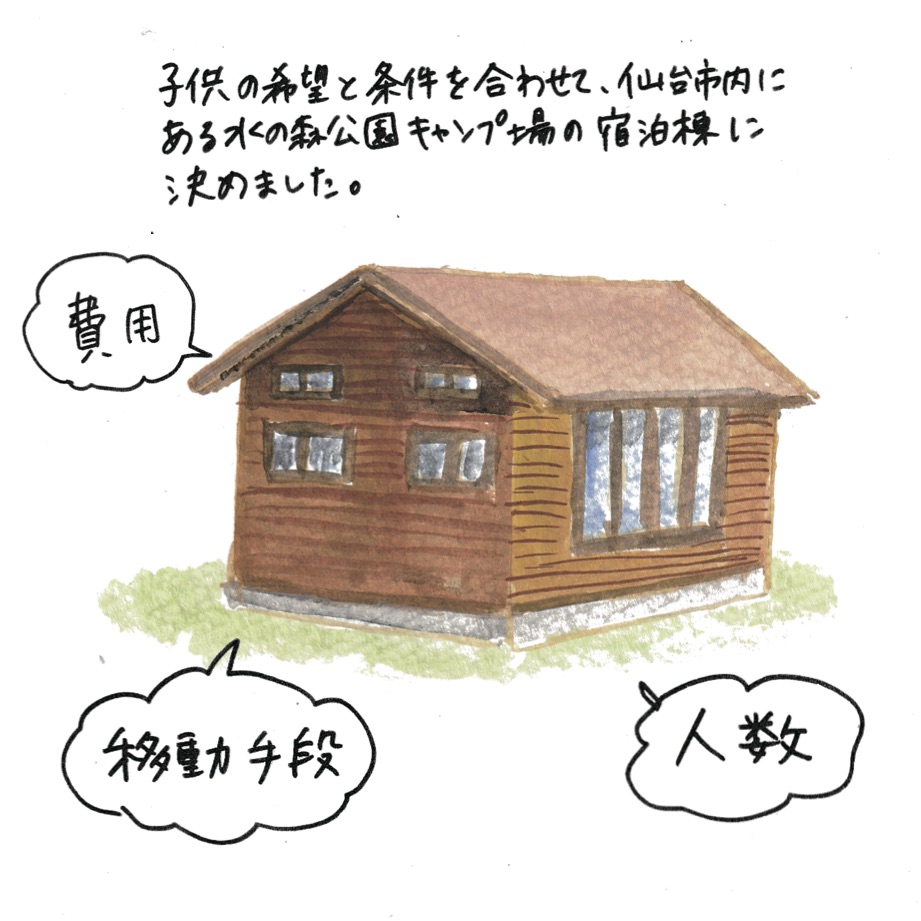 子供の希望と条件を合わせて、仙台市内に
ある水の森公園キャンプ場の宿泊棟に
決めました。
費用
移動手段
人数